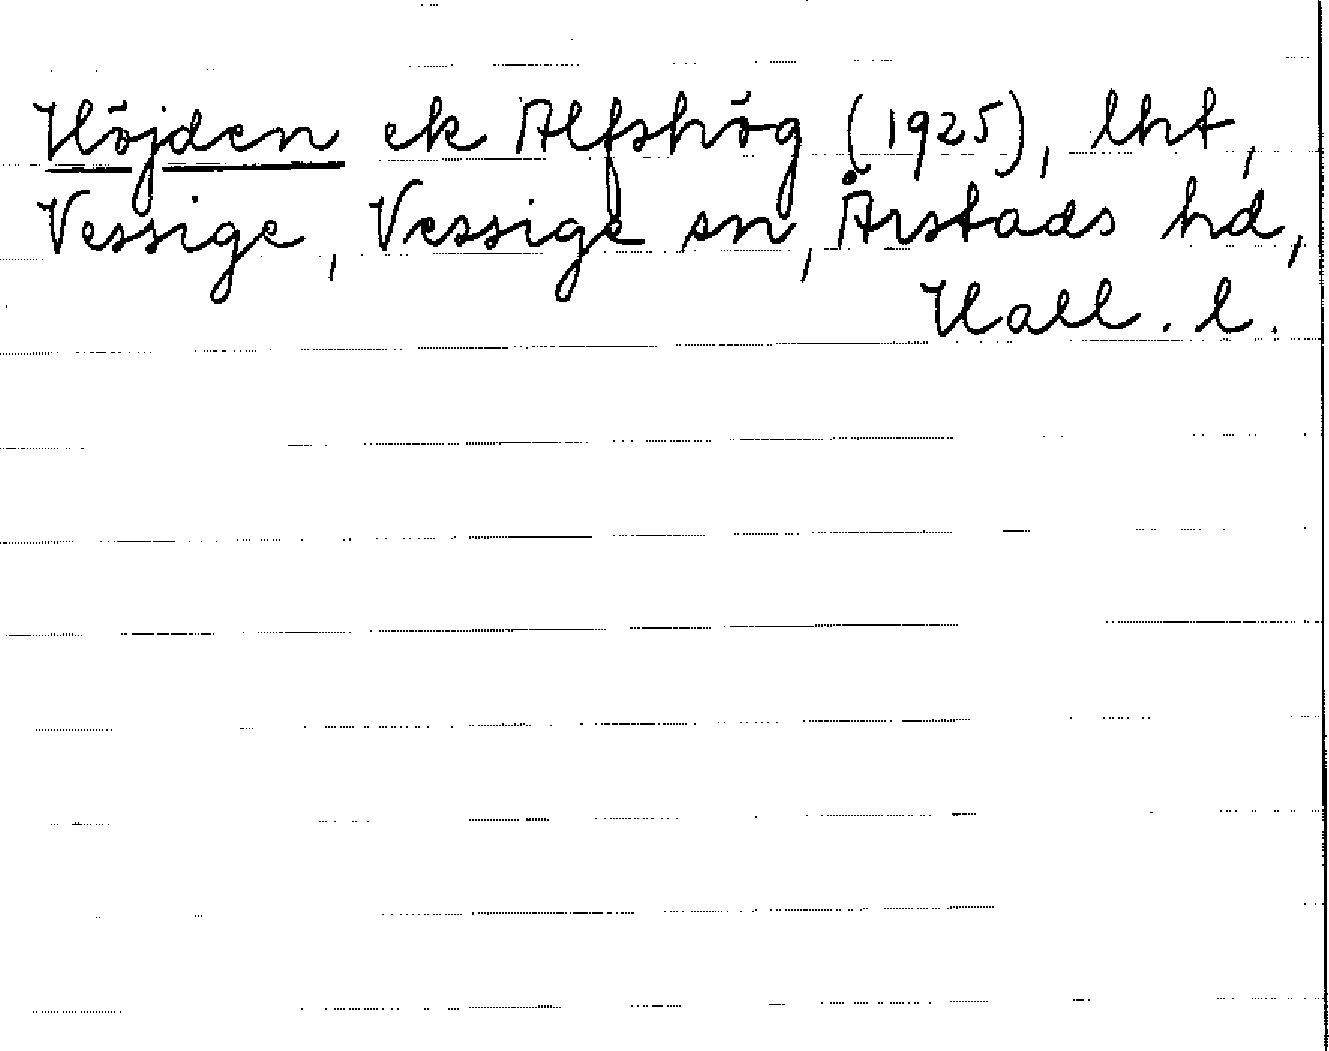 Höjden ek Alfshög (1925), lht,
Vessige, Vessige sn, Årstads hd,
Hall. l.